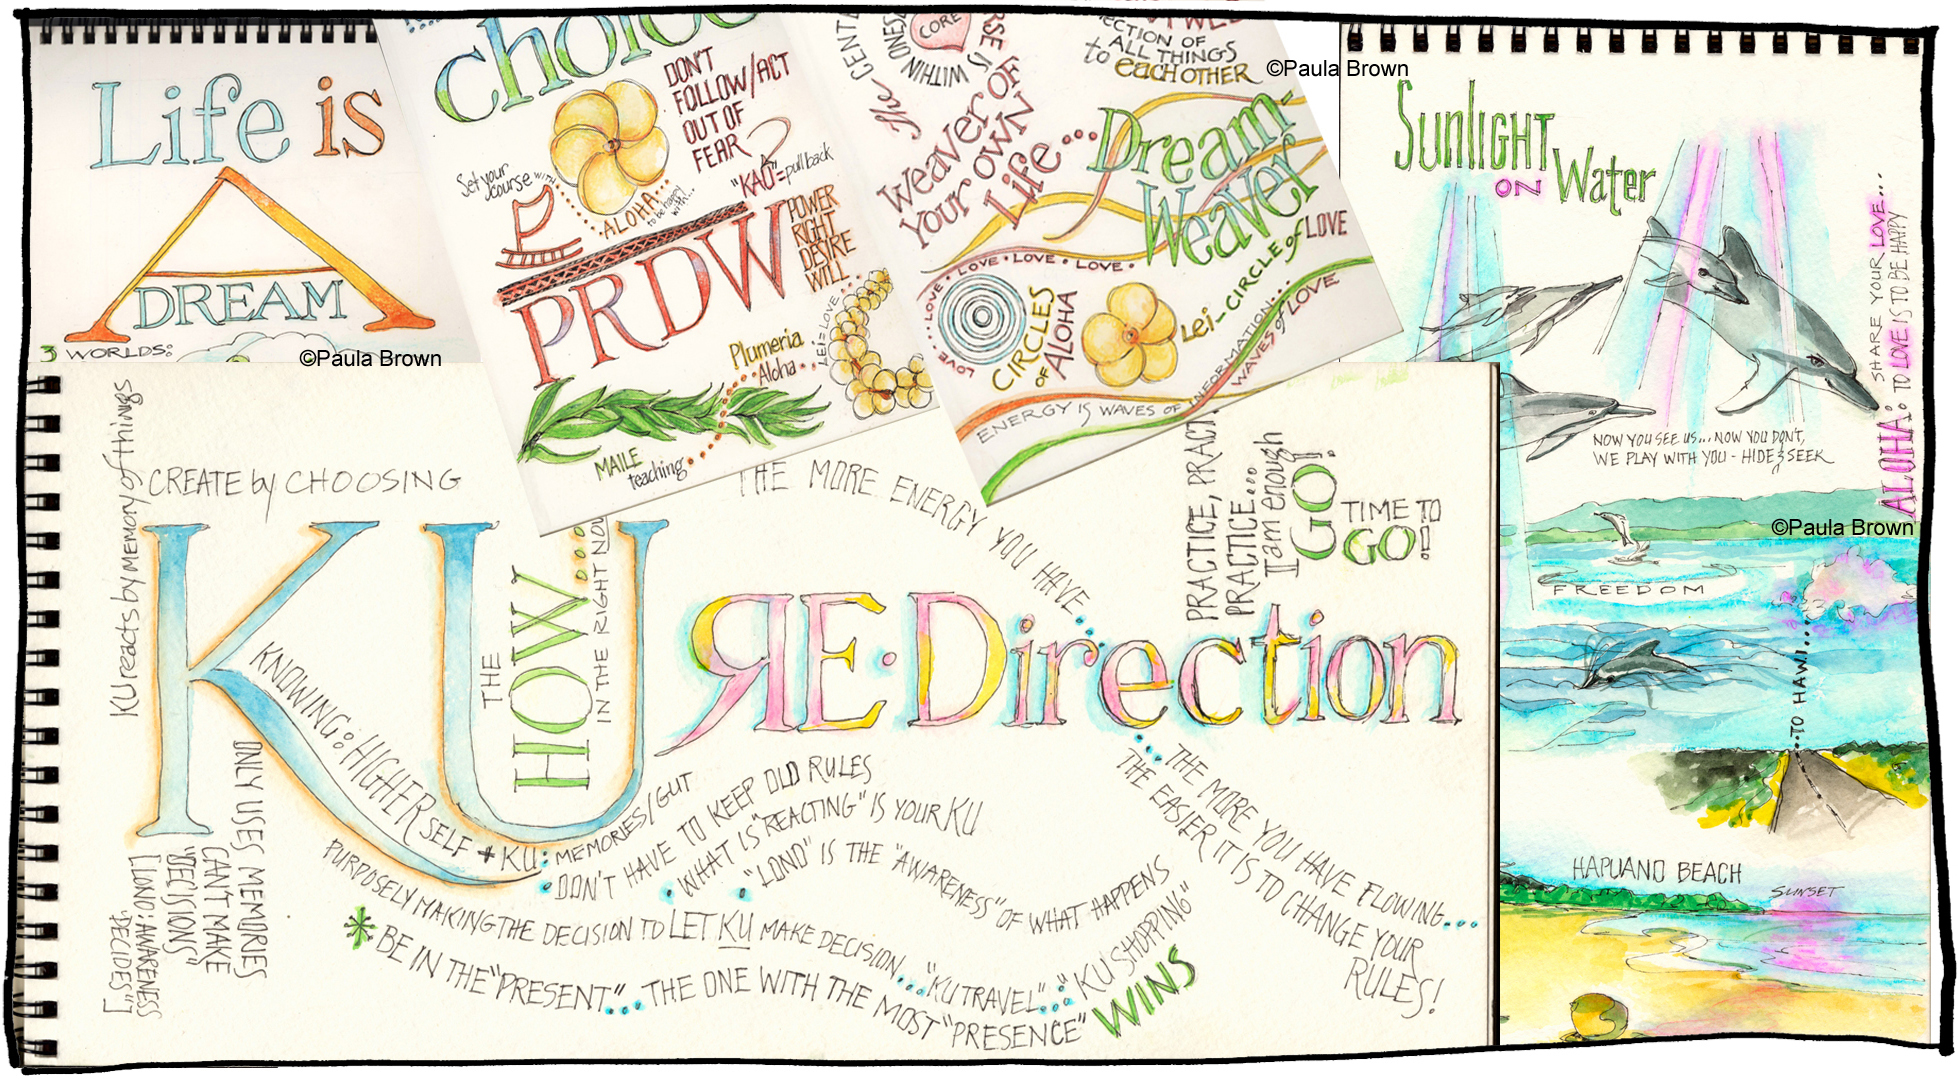 Life is
A
DREAM
3 WORLDS:
©Paula Brown
choice
DON'T
FOLLOW/ACT
OUT OF
FEAR?
"KAU"=pull back
Set your
course WITH
ALOHA:
to be happy
with...
PRDW
POWER
RIGHT
DESIRE
WILL...
Plumeria
Aloha...
LEI=LOVE
MAILE
teaching
The CENTE
CORE
IS WITHIN ONES
Weaver OF
Your own
Life...
ECTION OF
ALL THINGS
to each other
©Paula Brown
Dream-
Weaver
LOVE • LOVE • LOVE • LOVE • LOVE
CIRCLES
OF ALOHA
Lei-CIRCLE of LOVE
ENERGY IS WAVES OF INFORMATION...
WAVES of LOVE
Sunlight
ON Water
ALOHA: TO LOVE IS TO BE HAPPY
SHARE YOUR LOVE...
NOW YOU SEE US... NOW YOU DON'T,
WE PLAY WITH YOU - HIDE & SEEK
©Paula Brown
FREEDOM
...TO HAWI...
HAPUANO BEACH
SUNSET
KU reacts by MEMORY of things
CREATE by CHOOSING
KU
THE
HOW...
IN THE RIGHT NOW
RE•Direction
THE MORE ENERGY YOU HAVE...
PRACTICE, PRACTI
PRACTICE...
I am enough
GO!
TIME TO
GO!
KNOWING: HIGHER SELF + KU: MEMORIES/GUT
ONLY USES MEMORIES
CAN'T MAKE
"DECISIONS"
[LONO: AWARENESS
"DECIDES"]
DON'T HAVE TO KEEP OLD RULES
WHAT IS "REACTING" IS YOUR KU
"LONO" IS THE "AWARENESS" OF WHAT HAPPENS
PURPOSELY MAKING THE DECISION TO LET KU MAKE DECISION... "KU TRAVEL"... "KU SHOPPING"
* BE IN THE "PRESENT"... THE ONE WITH THE MOST "PRESENCE" WINS
THE MORE YOU HAVE FLOWING...
THE EASIER IT IS TO CHANGE YOUR
RULES!